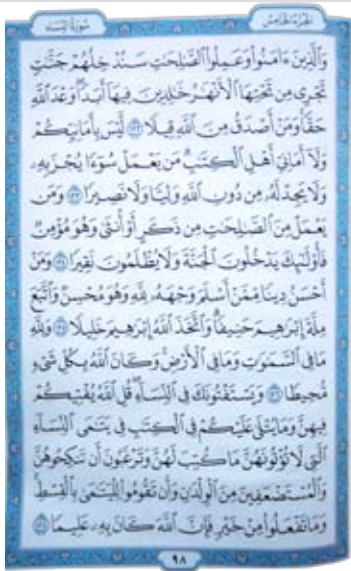 سورة النساء
الجزء الخامس
وَالَّذِينَ ءَامَنُوا وَعَمِلُوا الصَّٰلِحَٰتِ سَنُدْخِلُهُمْ جَنَّٰتٍ
تَجْرِى مِن تَحْتِهَا الْأَنْهَٰرُ خَٰلِدِينَ فِيهَا أَبَدًا وَعْدَ اللَّهِ
حَقًّا وَمَنْ أَصْدَقُ مِنَ اللَّهِ قِيلًا ١٢٢ لَّيْسَ بِأَمَانِيِّكُمْ
وَلَا أَمَانِىِّ أَهْلِ الْكِتَٰبِ مَن يَعْمَلْ سُوءًا يُجْزَ بِهِۦ
وَلَا يَجِدْ لَهُۥ مِن دُونِ اللَّهِ وَلِيًّا وَلَا نَصِيرًا ١٢٣ وَمَن
يَعْمَلْ مِنَ الصَّٰلِحَٰتِ مِن ذَكَرٍ أَوْ أُنثَىٰ وَهُوَ مُؤْمِنٌ
فَأُولَٰئِكَ يَدْخُلُونَ الْجَنَّةَ وَلَا يُظْلَمُونَ نَقِيرًا ١٢٤ وَمَنْ
أَحْسَنُ دِينًا مِّمَّنْ أَسْلَمَ وَجْهَهُۥ لِلَّهِ وَهُوَ مُحْسِنٌ وَاتَّبَعَ
مِلَّةَ إِبْرَٰهِيمَ حَنِيفًا وَاتَّخَذَ اللَّهُ إِبْرَٰهِيمَ خَلِيلًا ١٢٥ وَلِلَّهِ
مَا فِى السَّمَٰوَٰتِ وَمَا فِى الْأَرْضِ وَكَانَ اللَّهُ بِكُلِّ شَىْءٍ
مُّحِيطًا ١٢٦ وَيَسْتَفْتُونَكَ فِى النِّسَاءِ قُلِ اللَّهُ يُفْتِيكُمْ
فِيهِنَّ وَمَا يُتْلَىٰ عَلَيْكُمْ فِى الْكِتَٰبِ فِى يَتَٰمَى النِّسَاءِ
الَّٰتِى لَا تُؤْتُونَهُنَّ مَا كُتِبَ لَهُنَّ وَتَرْغَبُونَ أَن تَنكِحُوهُنَّ
وَالْمُسْتَضْعَفِينَ مِنَ الْوِلْدَٰنِ وَأَن تَقُومُوا لِلْيَتَٰمَىٰ بِالْقِسْطِ
وَمَا تَفْعَلُوا مِنْ خَيْرٍ فَإِنَّ اللَّهَ كَانَ بِهِۦ عَلِيمًا ١٢٧
٩٨